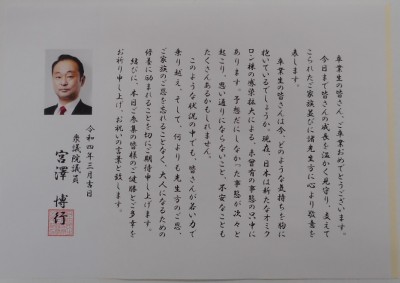 卒業生の皆さん、ご卒業おめでとうございます。
今日まで皆さんの成長を温かく見守り、支えて
こられたご家族並びに諸先生方に心より敬意を
表します。
卒業生の皆さんは今、どのような気持ちを胸に
抱いているでしょうか。現在、日本は新たなオミク
ロン株の感染拡大による、未曾有の事態の只中に
あります。予想だにしなかった事態が次々と
起こり、思い通りにならないこと、不安なことも
たくさんあるかもしれません。
このような状況の中でも、皆さんが若い力で
乗り越え、そして、何よりも先生方のご恩、
ご家族のご恩を忘れることなく、大人になるための
修養に励まれることを切にご期待申し上げます。
結びに、本日ご参集の皆様のご健勝とご多幸を
お祈り申し上げ、お祝いの言葉と致します。
令和四年三月吉日
衆議院議員
宮澤 博行